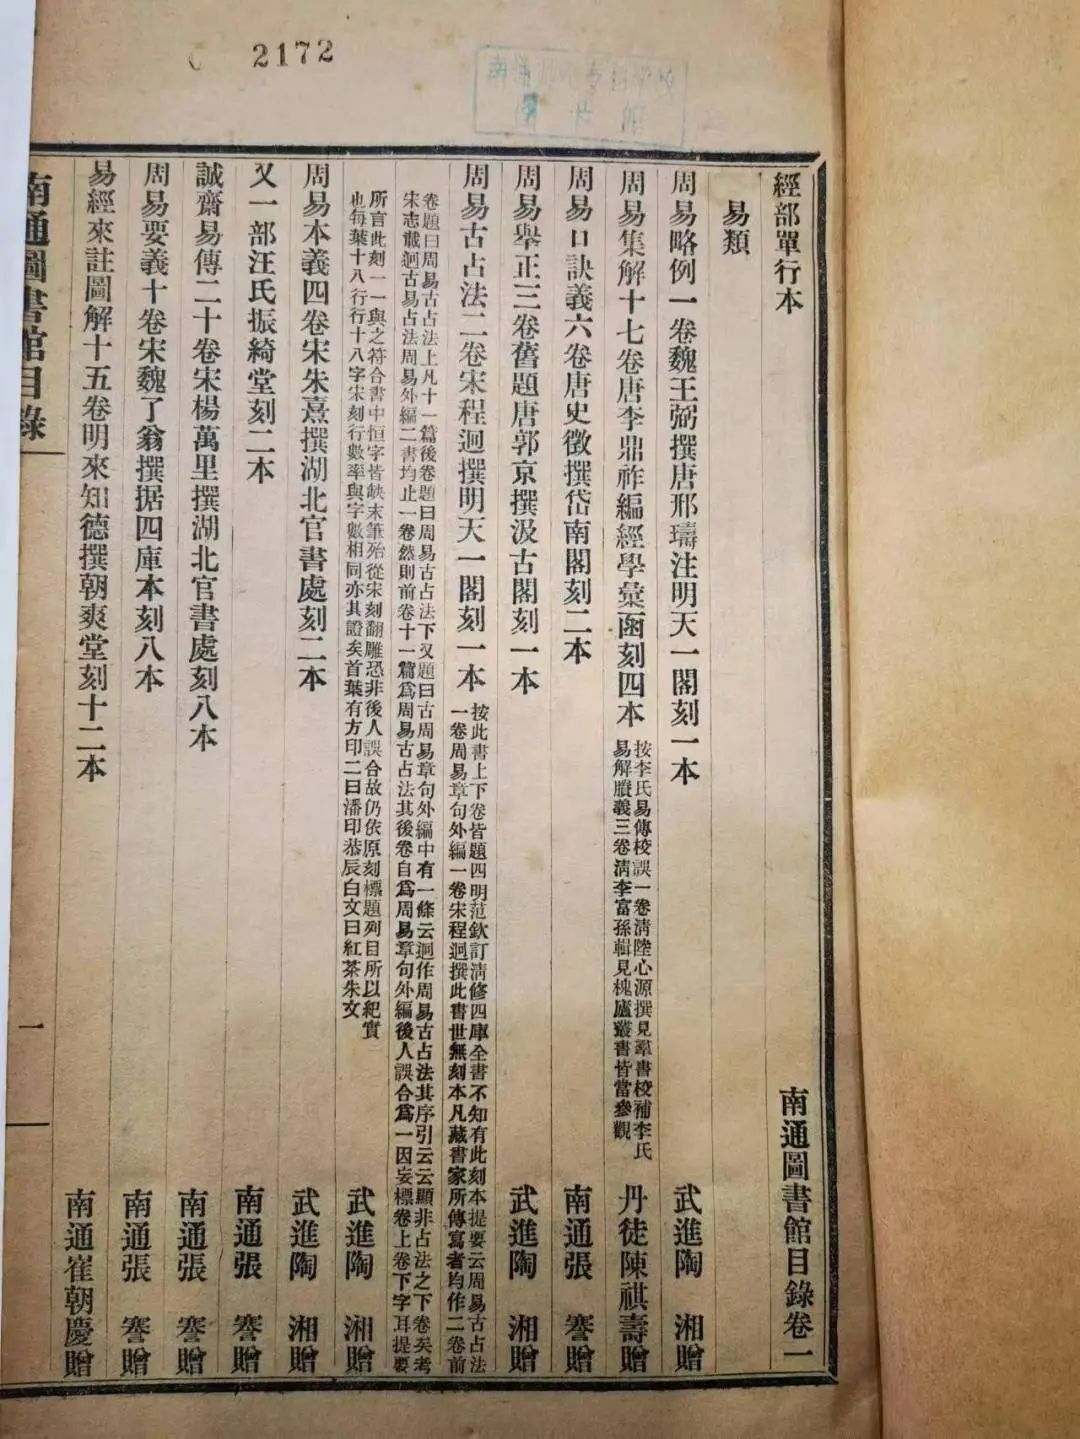 2172
經部單行本 南通圖書館目錄卷一
易類
周易略例一卷魏王弼撰唐邢璹注明天一閣刻一本 武進陶 湘贈
周易集解十七卷唐李鼎祚編經學彙函刻四本
按李氏易傳校誤一卷清陸心源撰見羣書校補李氏
易解賸義三卷清李富孫輯見槐廬叢書皆當參觀
丹徒陳祺壽贈
周易口訣義六卷唐史徵撰岱南閣刻二本 南通張 謇贈
周易舉正三卷舊題唐郭京撰汲古閣刻一本 武進陶 湘贈
周易古占法二卷宋程迥撰明天一閣刻一本
按此書上下卷皆題四明范欽訂清修四庫全書不知有此刻本提要云周易古占法
一卷周易章句外編一卷宋程迥撰此書世無刻本凡藏書家所傳寫者均作二卷前
卷題曰周易古占法上凡十一篇後卷題曰周易古占法下又題曰古周易章句外編中有一條云迥作周易古占法其序引云云顯非占法之下卷矣考
宋志載迥古易占法周易外編二書均止一卷然則前卷十一篇爲周易古占法其後卷自爲周易章句外編後人誤合爲一因妄標卷上卷下字耳提要
所言此刻一一與之符合書中恒字皆缺末筆殆從宋刻翻雕恐非後人誤合故仍依原刻標題列目所以紀實
也每葉十八行行十八字宋刻行數率與字數相同亦其證矣首葉有方印二曰潘印恭辰白文曰紅茶朱文
武進陶 湘贈
周易本義四卷宋朱熹撰湖北官書處刻二本 武進陶 湘贈
又一部汪氏振綺堂刻二本 南通張 謇贈
誠齋易傳二十卷宋楊萬里撰湖北官書處刻八本 南通張 謇贈
周易要義十卷宋魏了翁撰据四庫本刻八本 南通張 謇贈
易經來註圖解十五卷明來知德撰朝爽堂刻十二本 南通崔朝慶贈
南通圖書館目錄 一